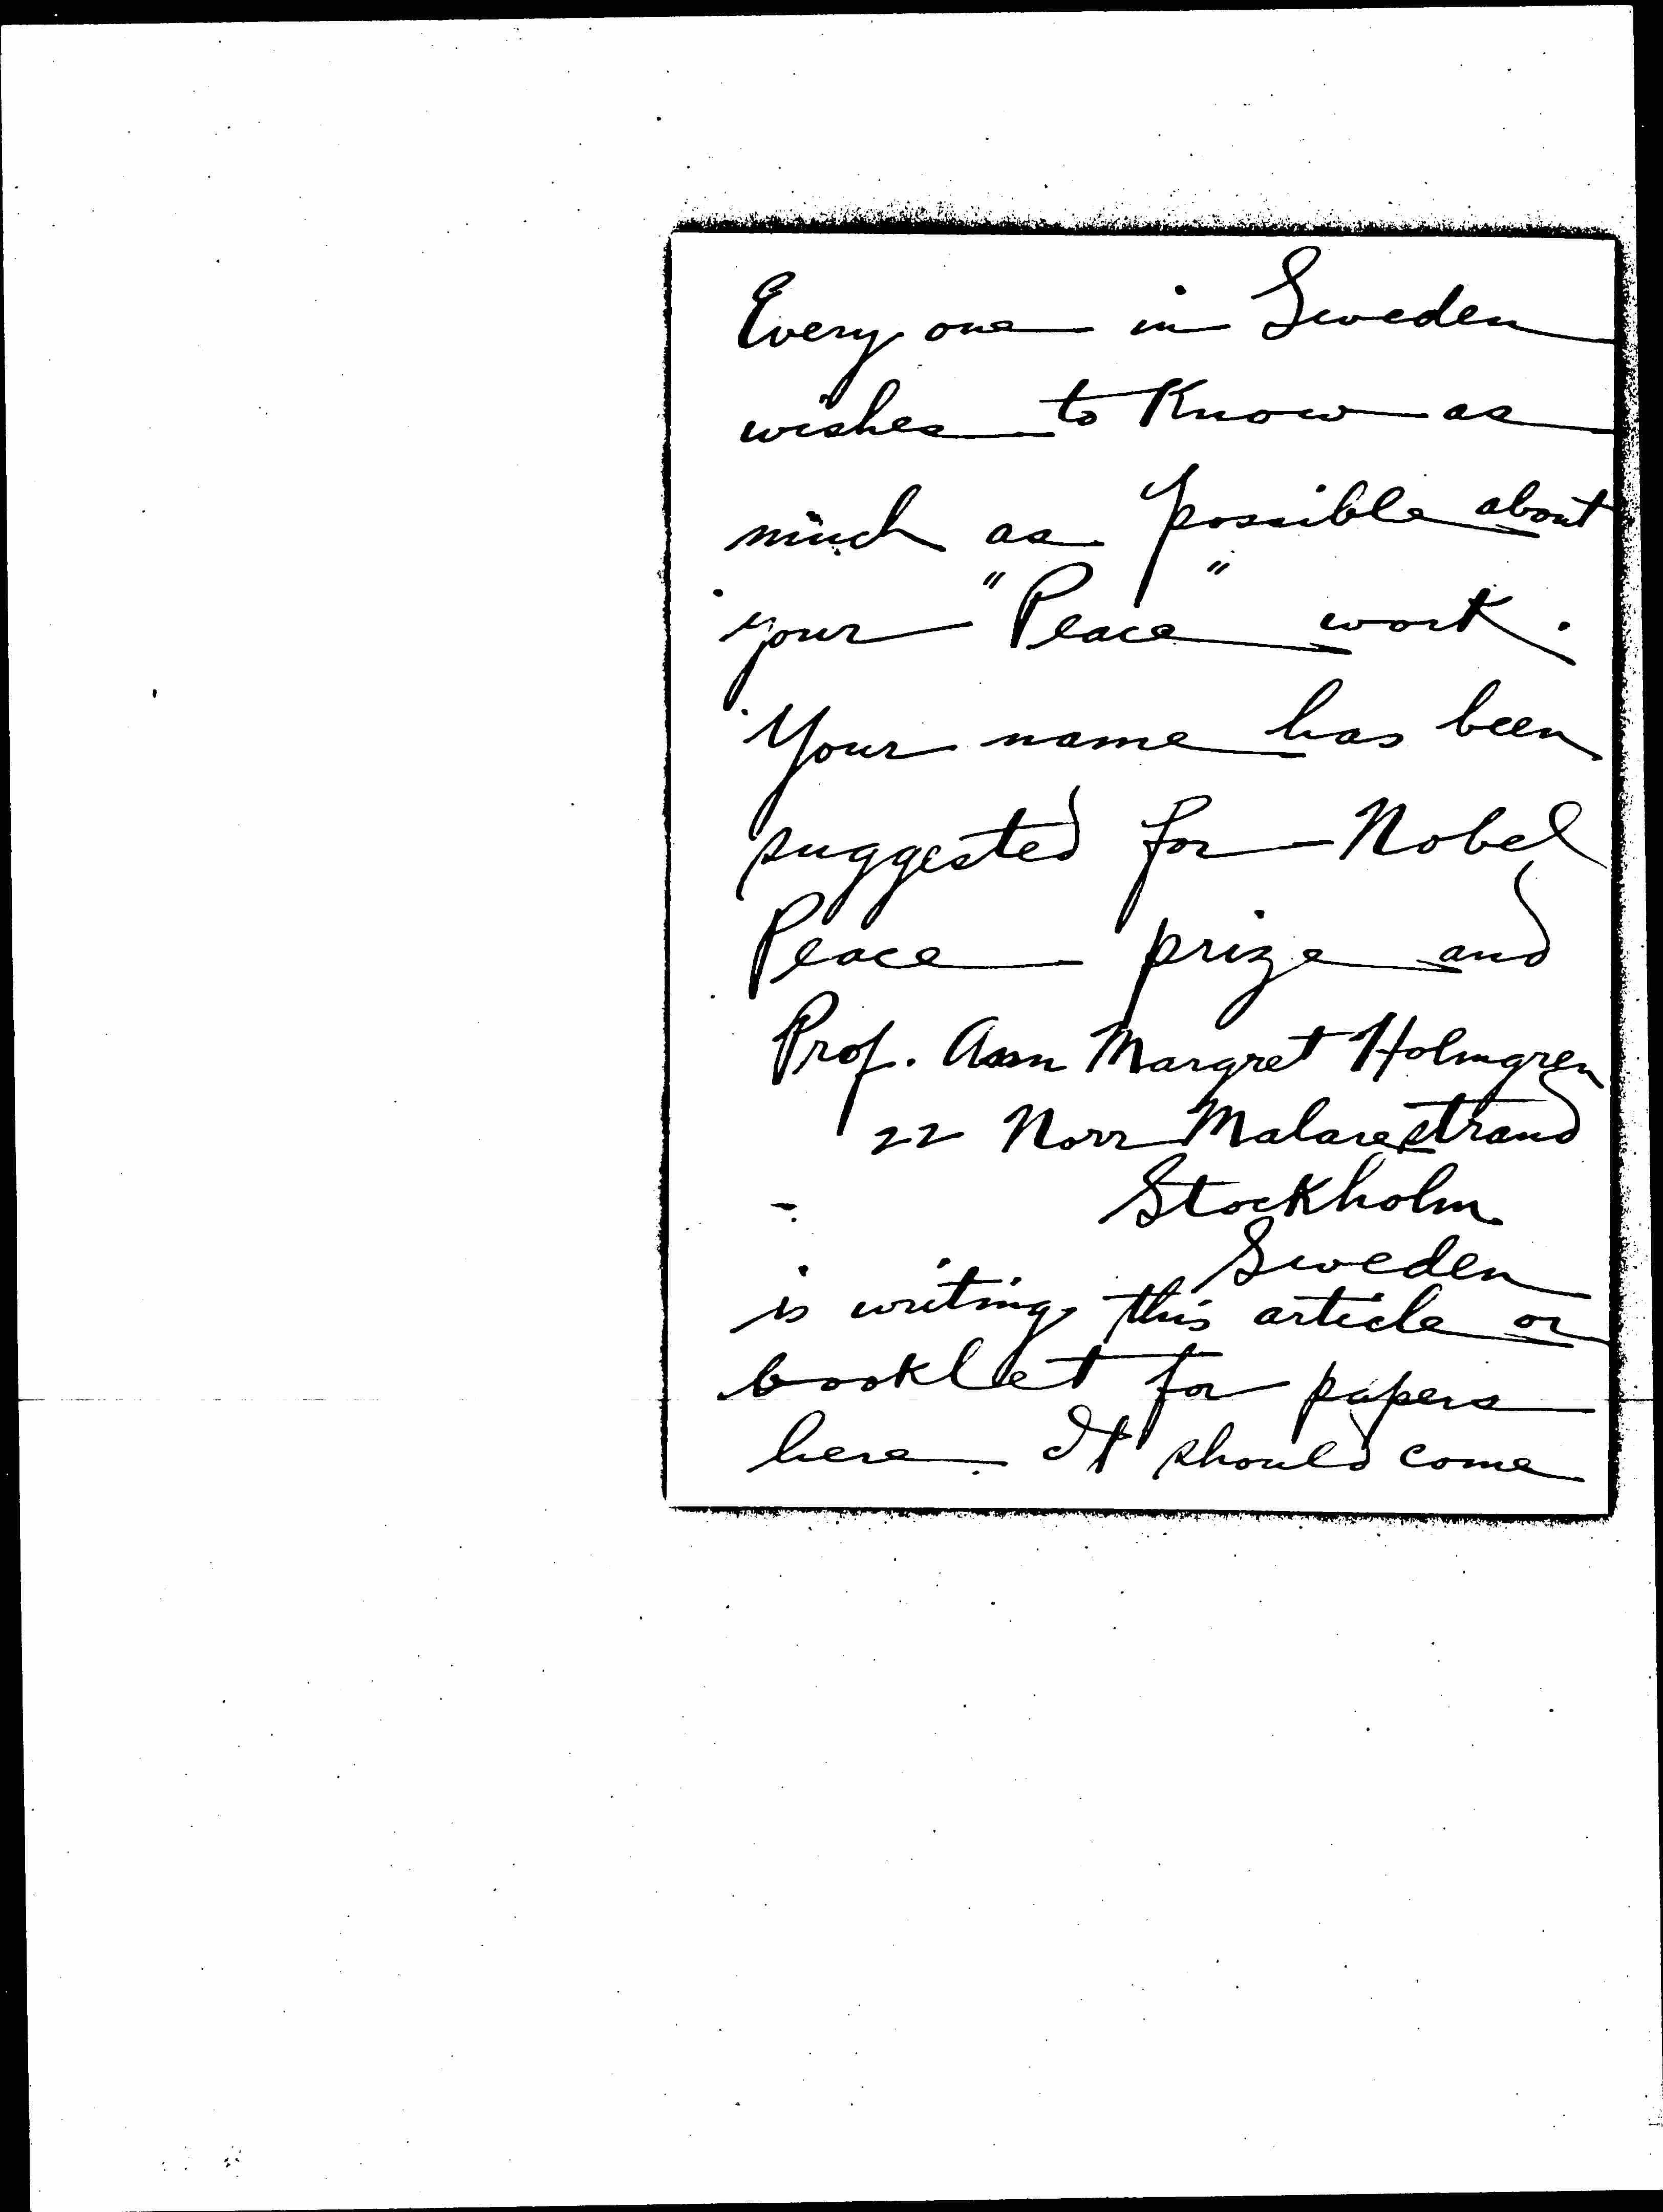 Every one in Sweden
wishes to Know as
much as possible about
your "Peace" work.
Your name has been
suggested for Nobel
Peace prize and
Prof. Ann Margret Holmgren
22 Norr Malarestrand
Stockholm
Sweden
is writing this article or
booklet for papers
here. It should come